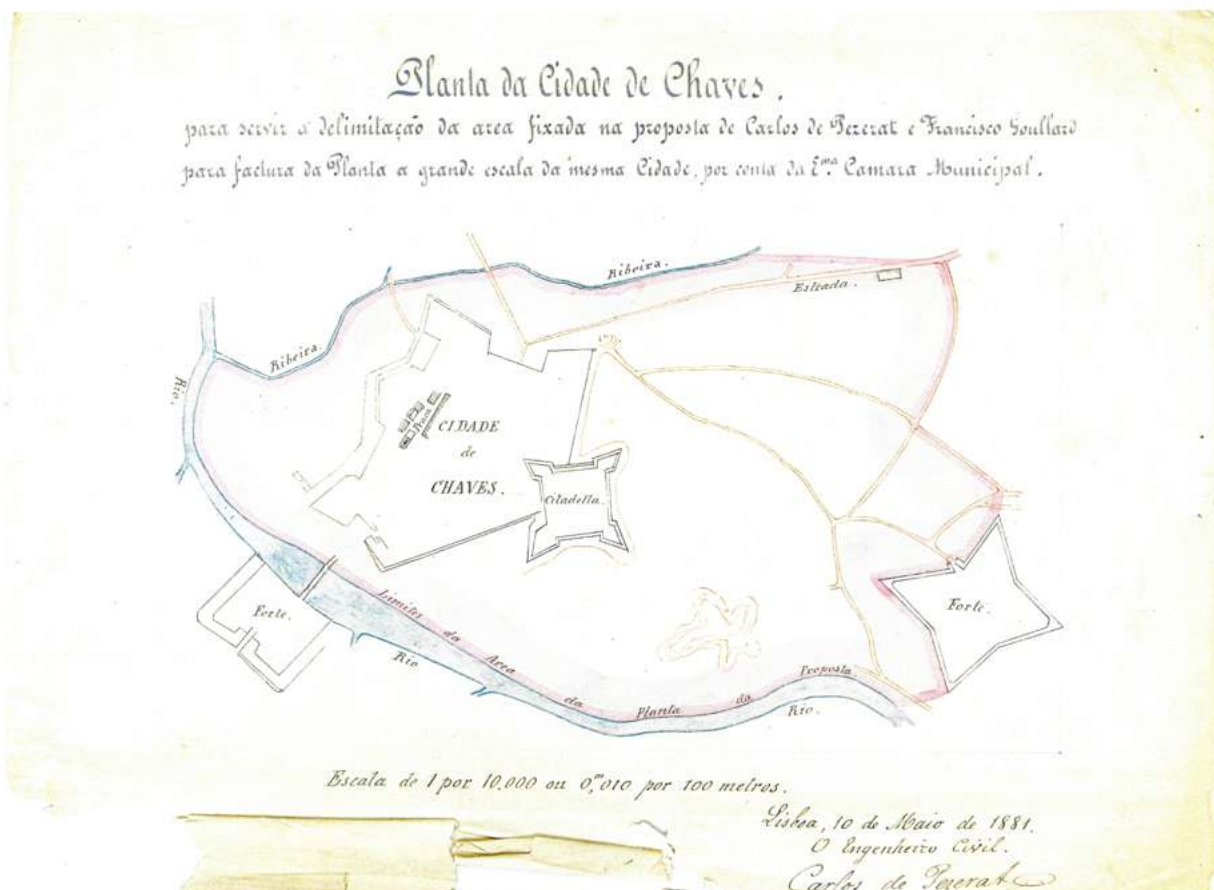 Planta da Cidade de Chaves.
para servir a delimitação da area fixada na proposta de Carlos de Pezerat e Francisco Goullard
para factura da Planta a grande escala da mesma Cidade, por conta da E.ma Camara Municipal.
Ribeira.
Estrada.
Ribeira.
Rio.
Praça
CIDADE
de
CHAVES.
Citadella.
Forte.
Forte.
Limites da Area da Planta da Proposta.
Rio
Rio.
Escala de 1 por 10,000 ou 0,m010 por 100 metros.
Lisboa, 10 de Maio de 1881.
O Engenheiro Civil.
Carlos de Pezerat